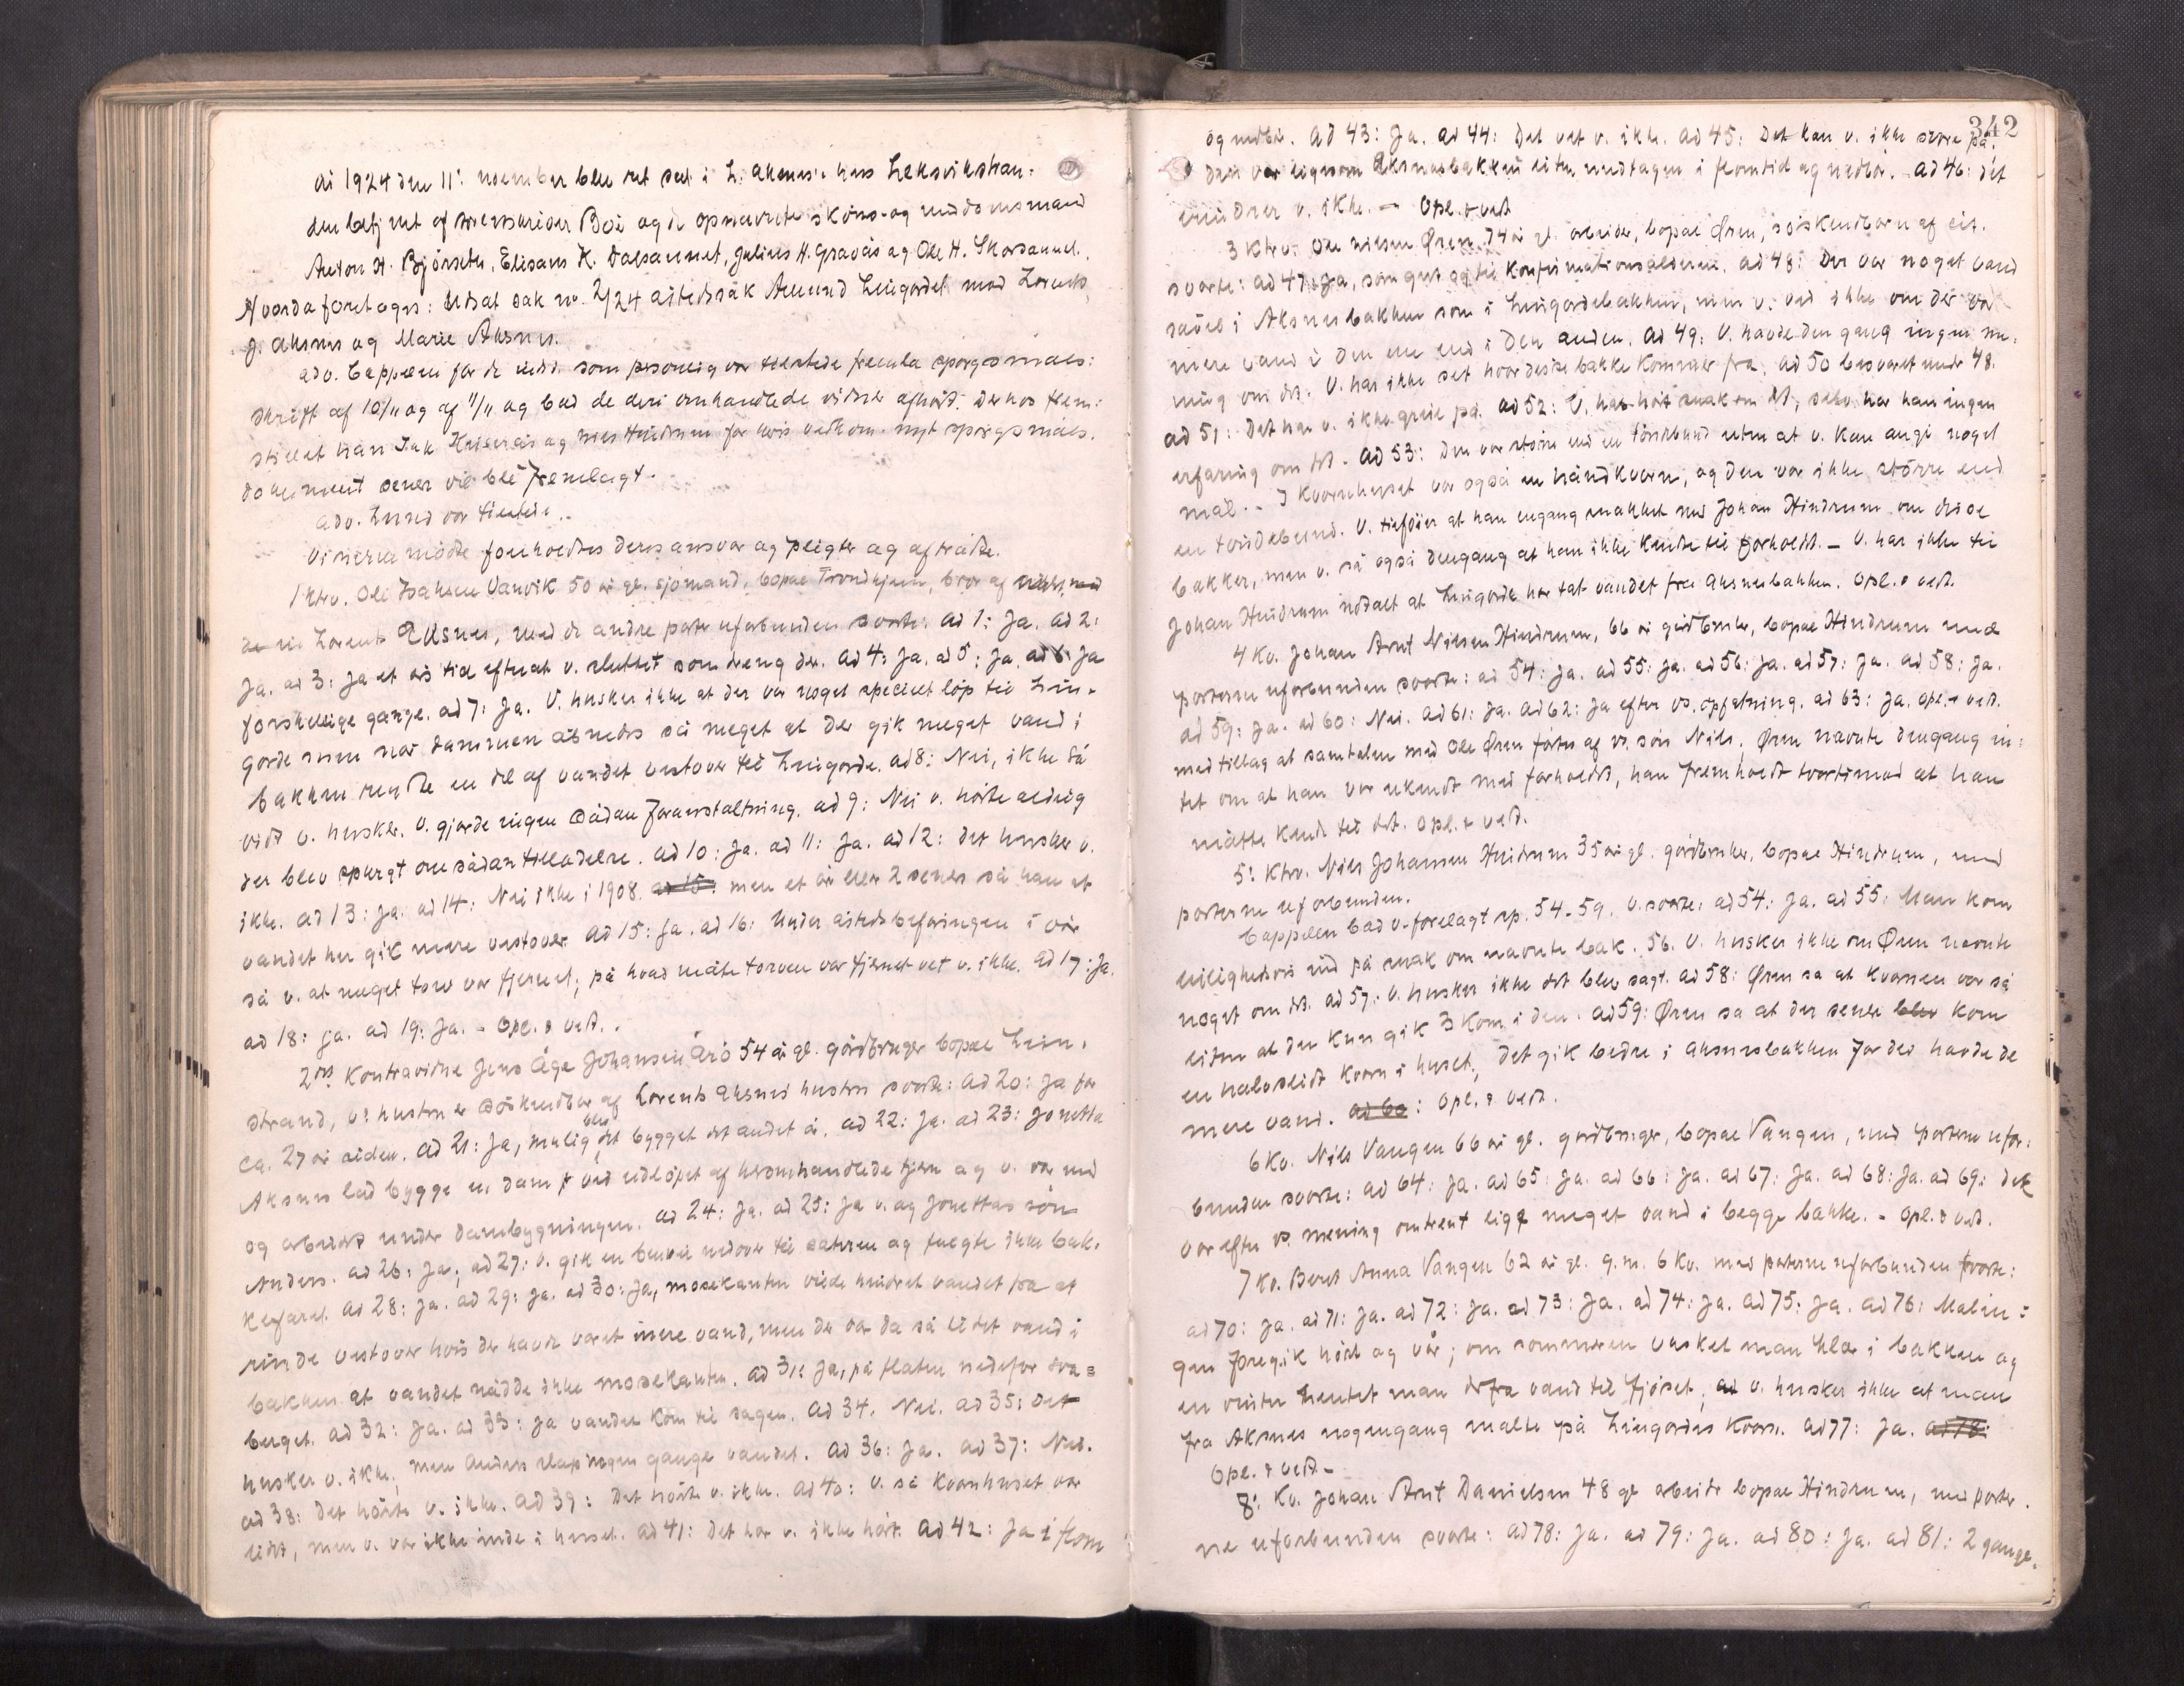 År 1924 den 11' november blev ret sat i L. Aksnes's hus Leksvikstran:
den betjent af sorenskriver Boi og de opnævnte skøns- og meddomsmænd
Anton H. Bjørseth, Elisæus K. Dalsaunet, Julius H. Gravås og Ole H. Skorsaunet.
Hvorda foretoges: Utsat sak nr. 2/24 åstedssak Amund Hingordet mod Lorents
J. Aksnes og Marie Aksnes.
Adv. Cappelen for de indst. som personlig var tilstede fremla spørgsmaals:
skrift af 10/11 og af 11/11 og bad de deri omhandlede vidner afhørt. Derhos frem:
stillet han Isak og Nils Hindrum for hvis vedkom. nyt spørgsmaals.
dokument senere vil bli fremlagt.
Adv. Lund var tilstede.
Vidnerne mødte foreholdtes deres ansvar og pligter og aftrådte.
1 ktrv. Ole Isaksen Vanvik 50 år gl. sjømand, bopæl Trondhjem, bror af
Lorents Aksnes, med de andre parter uforbunden svarte: ad 1: Ja. ad 2:
Ja. ad 3: Ja et års tid efterat v. sluttet som dreng der. ad 4: Ja. ad 5: Ja. ad 6: Ja
forskellige gange. ad 7: Ja. V. husker ikke at der var noget specielt løp til Hin-
gorde men når dammen åbnedes så meget at der gik meget vand i
bakken rendte en del af vandet vestover til Hingorde. ad 8: Nei, ikke så
vidt v. husker. V. gjorde ingen sådan foranstaltning. ad 9: Nei v. hørte aldrig
der blev spurgt om sådan tilladelse. ad 10: Ja. ad 11: Ja. ad 12: det husker v.
ikke. ad 13: Ja. ad 14: Nei ikke i 1908. ad 15: men et år eller 2 senere så han at
vandet her gik mere vestover. ad 15: Ja. ad 16: Under åstedsbefaringen i vår
så v. at meget torv var fjernet; på hvad måte torven var fjernet vet v. ikke. ad 17: Ja.
ad 18: Ja. ad 19: Ja. - Opl. & vedt.
2det Kontravidne Jens Åge Johansen Årø 54 år gl. gårdbruger bopæl Hin-
strand, v's hustru er søskendbarn af Lorents Aksnes' hustru svarte: ad 20: Ja for
ca. 27 år siden. ad 21: Ja, mulig blev det bygget det andet år. ad 22: Ja. ad 23: Jonetta
Aksnes lod bygge en dam ved udløpet af heromhandlede tjern og v. var med
og arbeidet under dambygningen. ad 24: Ja. ad 25: Ja v. og Jonettas søn
Anders. ad 26: Ja; ad 27: v. gik en benvei nedover til sætren og fulgte ikke bak-
kefaret. ad 28: Ja. ad 29: Ja. ad 30: Ja, mosekanten vilde hindret vandet fra at
rinde vestover hvis der havde været mere vand, men der var da så lidet vand i
bakken at vandet nådde ikke mosekanten. ad 31: Ja, på flaten nedefor sva=
berget. ad 32: Ja. ad 33: Ja vandet kom til sagen. ad 34. Nei. ad 35: Det
husker v. ikke, men Anders slap nogen gange vandet. ad 36: Ja. ad 37: Nei.
ad 38: Det hørte v. ikke. ad 39: Det hørte v. ikke. ad 40: V. så kvernhuset var
lidet, men v. var ikke inde i huset. ad 41: Det har v. ikke hørt. ad 42: Ja i flom
342
og nedbør. ad 43: Ja. ad 44: Det vet v. ikke. ad 45: Det kan v. ikke svare på.
Den var ligesom Aksnesbakken liten undtagen i flomtid og nedbør. ad 46: det
mindes v. ikke. - Opl. & vedt.
3 ktrv. Ole Nilsen Øren 74 år gl. arbeider, bopæl Øren, søskendbarn af cit.
svarte: ad 47: Ja, som gut og til konfirmationsalderen. ad 48: Der var noget vand
såvel i Aksnesbakken som i Hingordebakken, men v. ved ikke om der var
mere vand i den ene end i den anden. ad 49: V. havde den gang ingen me:
ning om det. V. har ikke set hvor disse bakke kommer fra. ad 50 besvaret under 48.
ad 51: Det kan v. ikke greie på. ad 52: V. har hørt snak om det, selv har han ingen
erfaring om det. ad 53: Den var større end en uten at v. kan angi noget
mål. - I kvernhuset var også en håndkvern, og den var ikke større end
en V. tilføier at han engang snakket med Johan Hindrum om disse
bakker, men v. sa også dengang at han ikke kendte til forholdet. - V. har ikke til
Johan Hindrum uttalt at Hingorde har tat vandet fra Aksnesbakken. Opl. & vedt.
4 Kv. Johan Arnt Nilsen Hindrum, 66 år gårdbruker, bopæl Hindrum med
parterne uforbunden svarte: ad 54: Ja. ad 55: Ja. ad 56: Ja. ad 57: Ja. ad 58: Ja.
ad 59: Ja. ad 60: Nei. ad 61: Ja. ad 62: Ja efter vs. opfatning. ad 63: Ja. Opl. & vedt.
med tillæg at samtalen med Ole Øren førtes af vs. søn Nils. Øren nævnte dengang in:
tet om at han var ukendt med forholdet, han fremholdt tvertimod at han
måtte kende til det. Opl. & vedt.
5: Ktrv. Nils Johansen Hindrum 35 år gl. gårdbruker, bopæl Hindrum, med
parterne uforbunden.
Cappelen bad v. forelagt sp. 54-59. V. svarte: ad 54: Ja. ad 55: Man kom
leilighedsvis ind på snak om nævnte bak. 56. V. husker ikke om Øren nævnte
noget om det. ad 57: V. husker ikke det blev sagt. ad 58: Øren sa at kvernen var så
liten at der kun gik 3 korn i den. ad 59: Øren sa at der senere blev kom
en halvslidt kvern i huset, det gik bedre i Aksnesbakken for der havde de
mere vand. ad 60: Opl. & vedt.
6 Kv. Nils Vangen 66 år gl. gårdbruger, bopæl Vangen, med parterne ufor:
bunden svarte: ad 64: Ja. ad 65: Ja. ad 66: Ja. ad 67: Ja. ad 68: Ja. ad 69: det
var efter vs. mening omtrent lige meget vand i begge bakke. - Opl. & vedt.
7 Kv. Beret Anna Vangen 62 år gl. g.m. 6 Kv. med parterne uforbunden svarte:
ad 70: Ja. ad 71: Ja. ad 72: Ja. ad 73: Ja. ad 74: Ja. ad 75: Ja. ad 76: Malin:
gen foregik høst og vår; om sommeren vasket man klær i bakken og
om vintren hentet man derfra vand til fjøset, ad v. husker ikke at man
fra Aksnes nogengang malte på Hingordes kvern. ad 77: Ja. ad 78:
Opl. & vedt. -
8: Kv. Johan Arnt Danielsen 48 gl arbeider bopæl Hindrum, med parter.
ne uforbunden svarte: ad 78: Ja. ad 79: Ja. ad 80: Ja. ad 81: 2 gange.